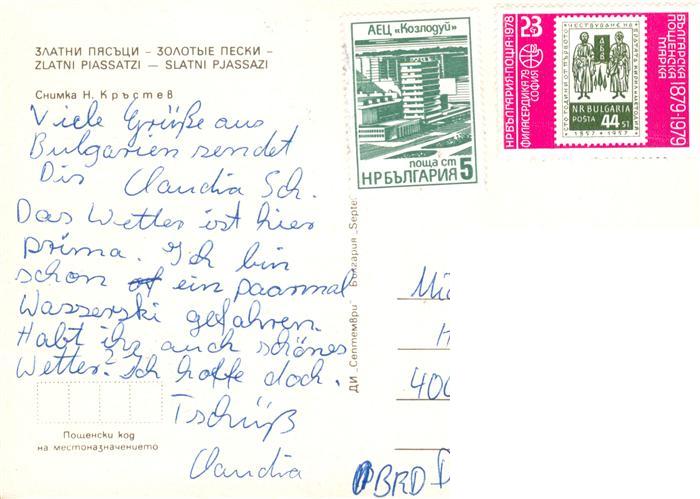 ЗЛАТНИ ПЯСЪЦИ – ЗОЛОТЫЕ ПЕСКИ –
ZLATNI PIASSATZI — SLATNI PJASSAZI
Снимка Н. Кръстев
Viele Grüße aus
Bulgarien sendet
Dir Claudia Sch.
Das Wetter ist hier
prima. Ich bin
schon ein paarmal
Wasserski gefahren.
Habt ihr auch schönes
Wetter? Ich hoffe doch.
Tschüß
Claudia
Пощенски код
на местоназначението
АЕЦ „Козлодуй"
поща ст
НРБЪЛГАРИЯ 5
23
НРБЪЛГАРИЯ·ПОЩА·1978
ФИЛАСЕРДИКА'79
СОФИЯ
ЧЕСТВУВАНЕ НА
СТО ГОДИНИ ОТ ПЪРВОТО
БРАТЯТА КИРИЛ И МЕТОДИЙ
NR BULGARIA
POŠTA 44 ST
1857 • 1957
БЪЛГАРСКА
ПОЩЕНСКА
МАРКА
1879·1979
ДИ „Септември" България „Septe
Mi
H
400
BRD